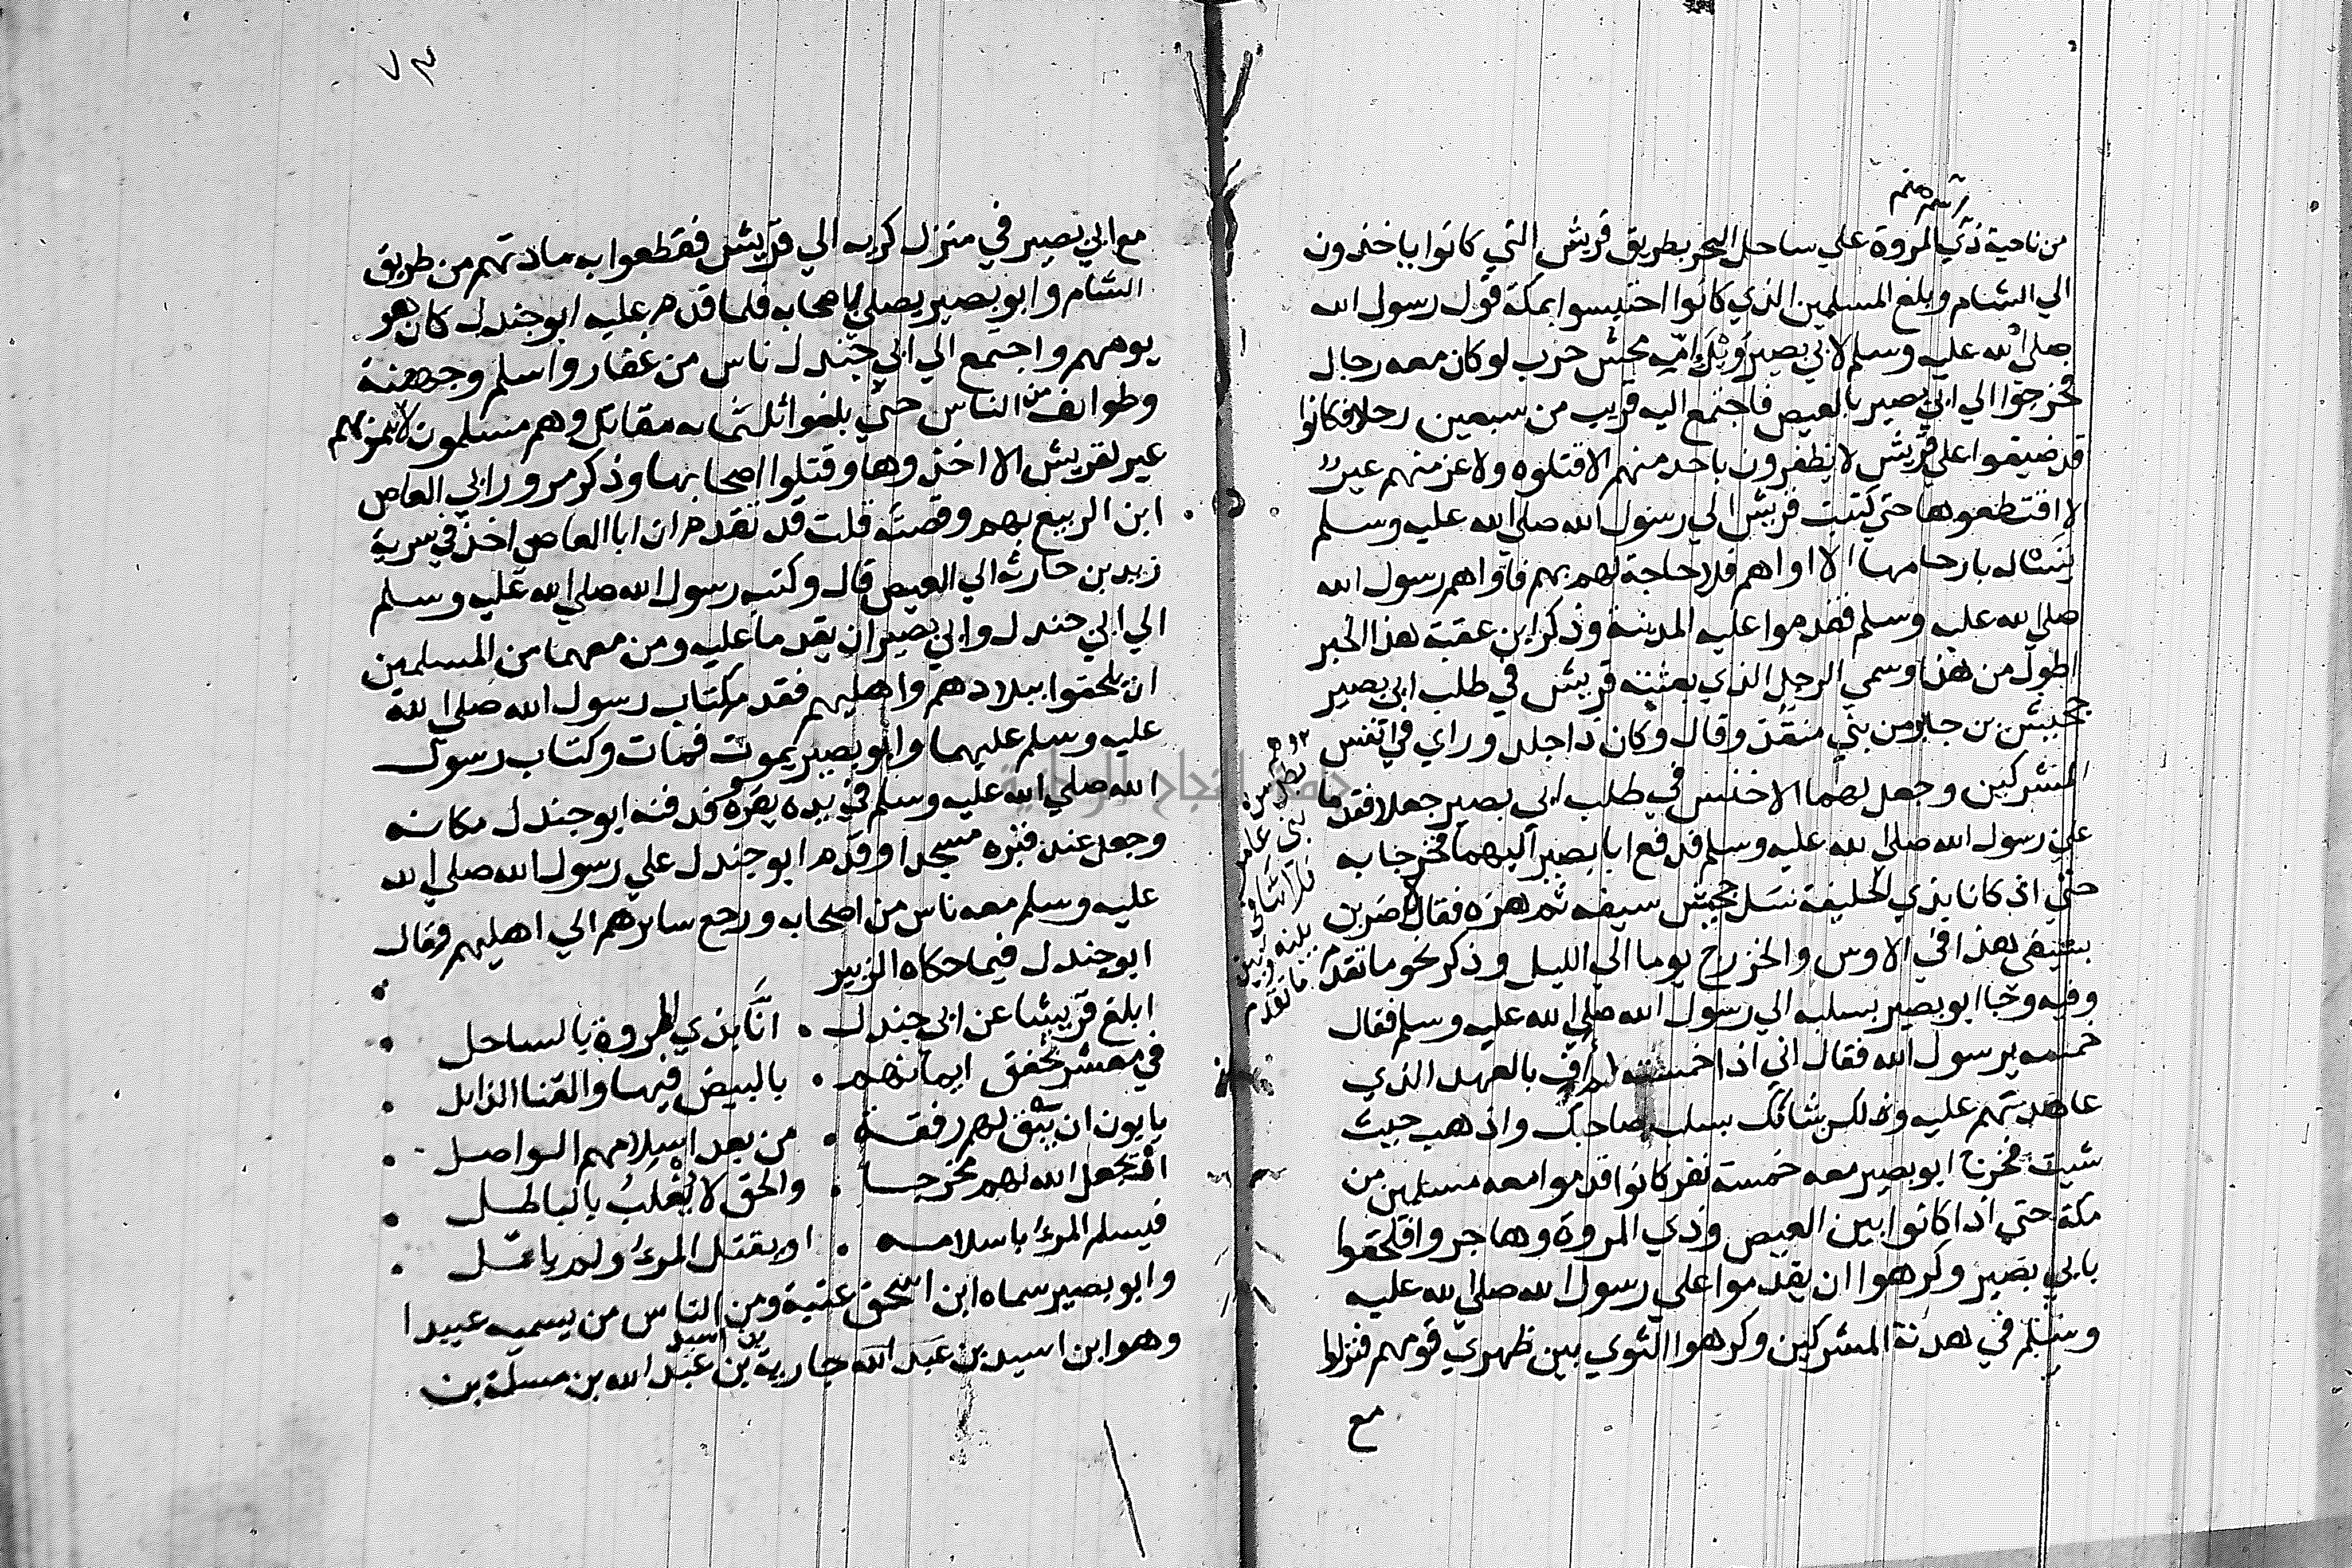 من ناحية ذي المروة علي ساحل البحر بطريق قريش التي كانوا ياخذون
الي الشام وبلغ المسلمين الذي كانوا احتبسوا بمكة قول رسول الله
صلي الله عليه وسلم لابي بصير ويل امه محش حرب لو كان معه رجال
فخرجوا الي ابي بصير بالعيص فاجتمع اليه قريب من سبعين رجلا فكانوا
قد ضيقوا علي قريش لا يظفرون باحد منهم الا قتلوه ولا عز منهم عير
الا اقتطعوها حتي كتبت قريش الي رسول الله صلي الله عليه وسلم
يسئاله بارحامها الا اواهم فلا حاجة لهم بهم فاواهم رسول الله
صلي الله عليه وسلم فقدموا عليه المدينة وذكر ابن عقبة هذا الخبر
اطول من هذا وسمي الرجل الذي بعثته قريش في طلب ابي بصير
جحيش بن جابر من بني منقذ وقال وكان ذا جلد وراي في انفس
المشركين وجعل لهما الاخنس في طلب ابي بصير جعلا فقدما
علي رسول الله صلي الله عليه وسلم فدفع ابا بصير اليهما فخرجا به
حتي اذ كانا بذي الحليفة نسل جحيش سيفه ثم هزه فقال لاضربن
بسيفي هذا في الاوس والخزرج يوما الي الليل وذكر نحو ما تقدم
وفيه وجا ابو بصير بسلبه الي رسول الله صلي الله عليه وسلم فقال
خمسه يرسول الله فقال اني اذا خمسته لم أف بالعهد الذي
عاهدتهم عليه ولكن شانك بسلب صاحبك واذهب حيث
شيت فخرج ابو بصير معه خمسة نفر كانوا قدموا معه مسلمين من
مكة حتي اذا كانوا بين العيص وذي المروة وهاجروا فلحقوا
بابي بصير وكرهوا ان يقدموا علي رسول الله صلي الله عليه
وسلم في هدنة المشركين وكرهوا الثوي بين ظهري قومهم فنزلوا
مع
بني عامر
ما تقدم
٧٣
مع ابي بصير في منزل كريه الي قريش فقطعوا به مادتهم من طريق
الشام وابو بصير يصلي باصحابه فلما قدم عليه ابو جندل كان هو
يومهم واجتمع الي ابي جندل ناس من غفار واسلم وجهينة
وطوائف من الناس حتي بلغوا ثلثماية مقاتل وهم مسلمون لا تمر بهم
عير لقريش الا اخذوها وقتلوا اصحابها وذكر مرور ابي العاص
ابن الربيع بهم وقصته قلت قد تقدم ان ابا العاص اخذ في سرية
زيد بن حارثة الي العيص قال وكتب رسول الله صلي الله عليه وسلم
الي ابي جندل وابي بصير ان يقدما عليه ومن معهما من المسلمين
ان يلحقوا ببلادهم واهليهم فقدم كتاب رسول الله صلي الله
عليه وسلم عليهما وابو بصير يموت فمات وكتاب رسول
الله صلي الله عليه وسلم في يده يقرؤه فدفنه ابو جندل مكانه
وجعل عند قبره مسجدا وقدم ابو جندل علي رسول الله صلي الله
عليه وسلم معه ناس من اصحابه ورجع سايرهم الي اهليهم وقال
ابو جندل فيما حكاه الزبير
ابلغ قريشا عن ابي جندل . انا بذي المروة بالساحل
في معشر تخفق ايمانهم . بالبيض فيها والقنا الذابل
يابون ان تبقي لهم رفقة . من بعد اسلامهم الواصل
او يجعل الله لهم مخرجا . والحق لا يغلب بالباطل
فيسلم المرء باسلامه . او يقتل المرء ولم ياتل
وابو بصير سماه ابن اسحق عتبة ومن الناس من يسميه عبيدا
وهو ابن اسيد بن عبد الله جارية بن اسيد بن عبد الله بن مسلمة بن
جامعة النجاح الوطنية